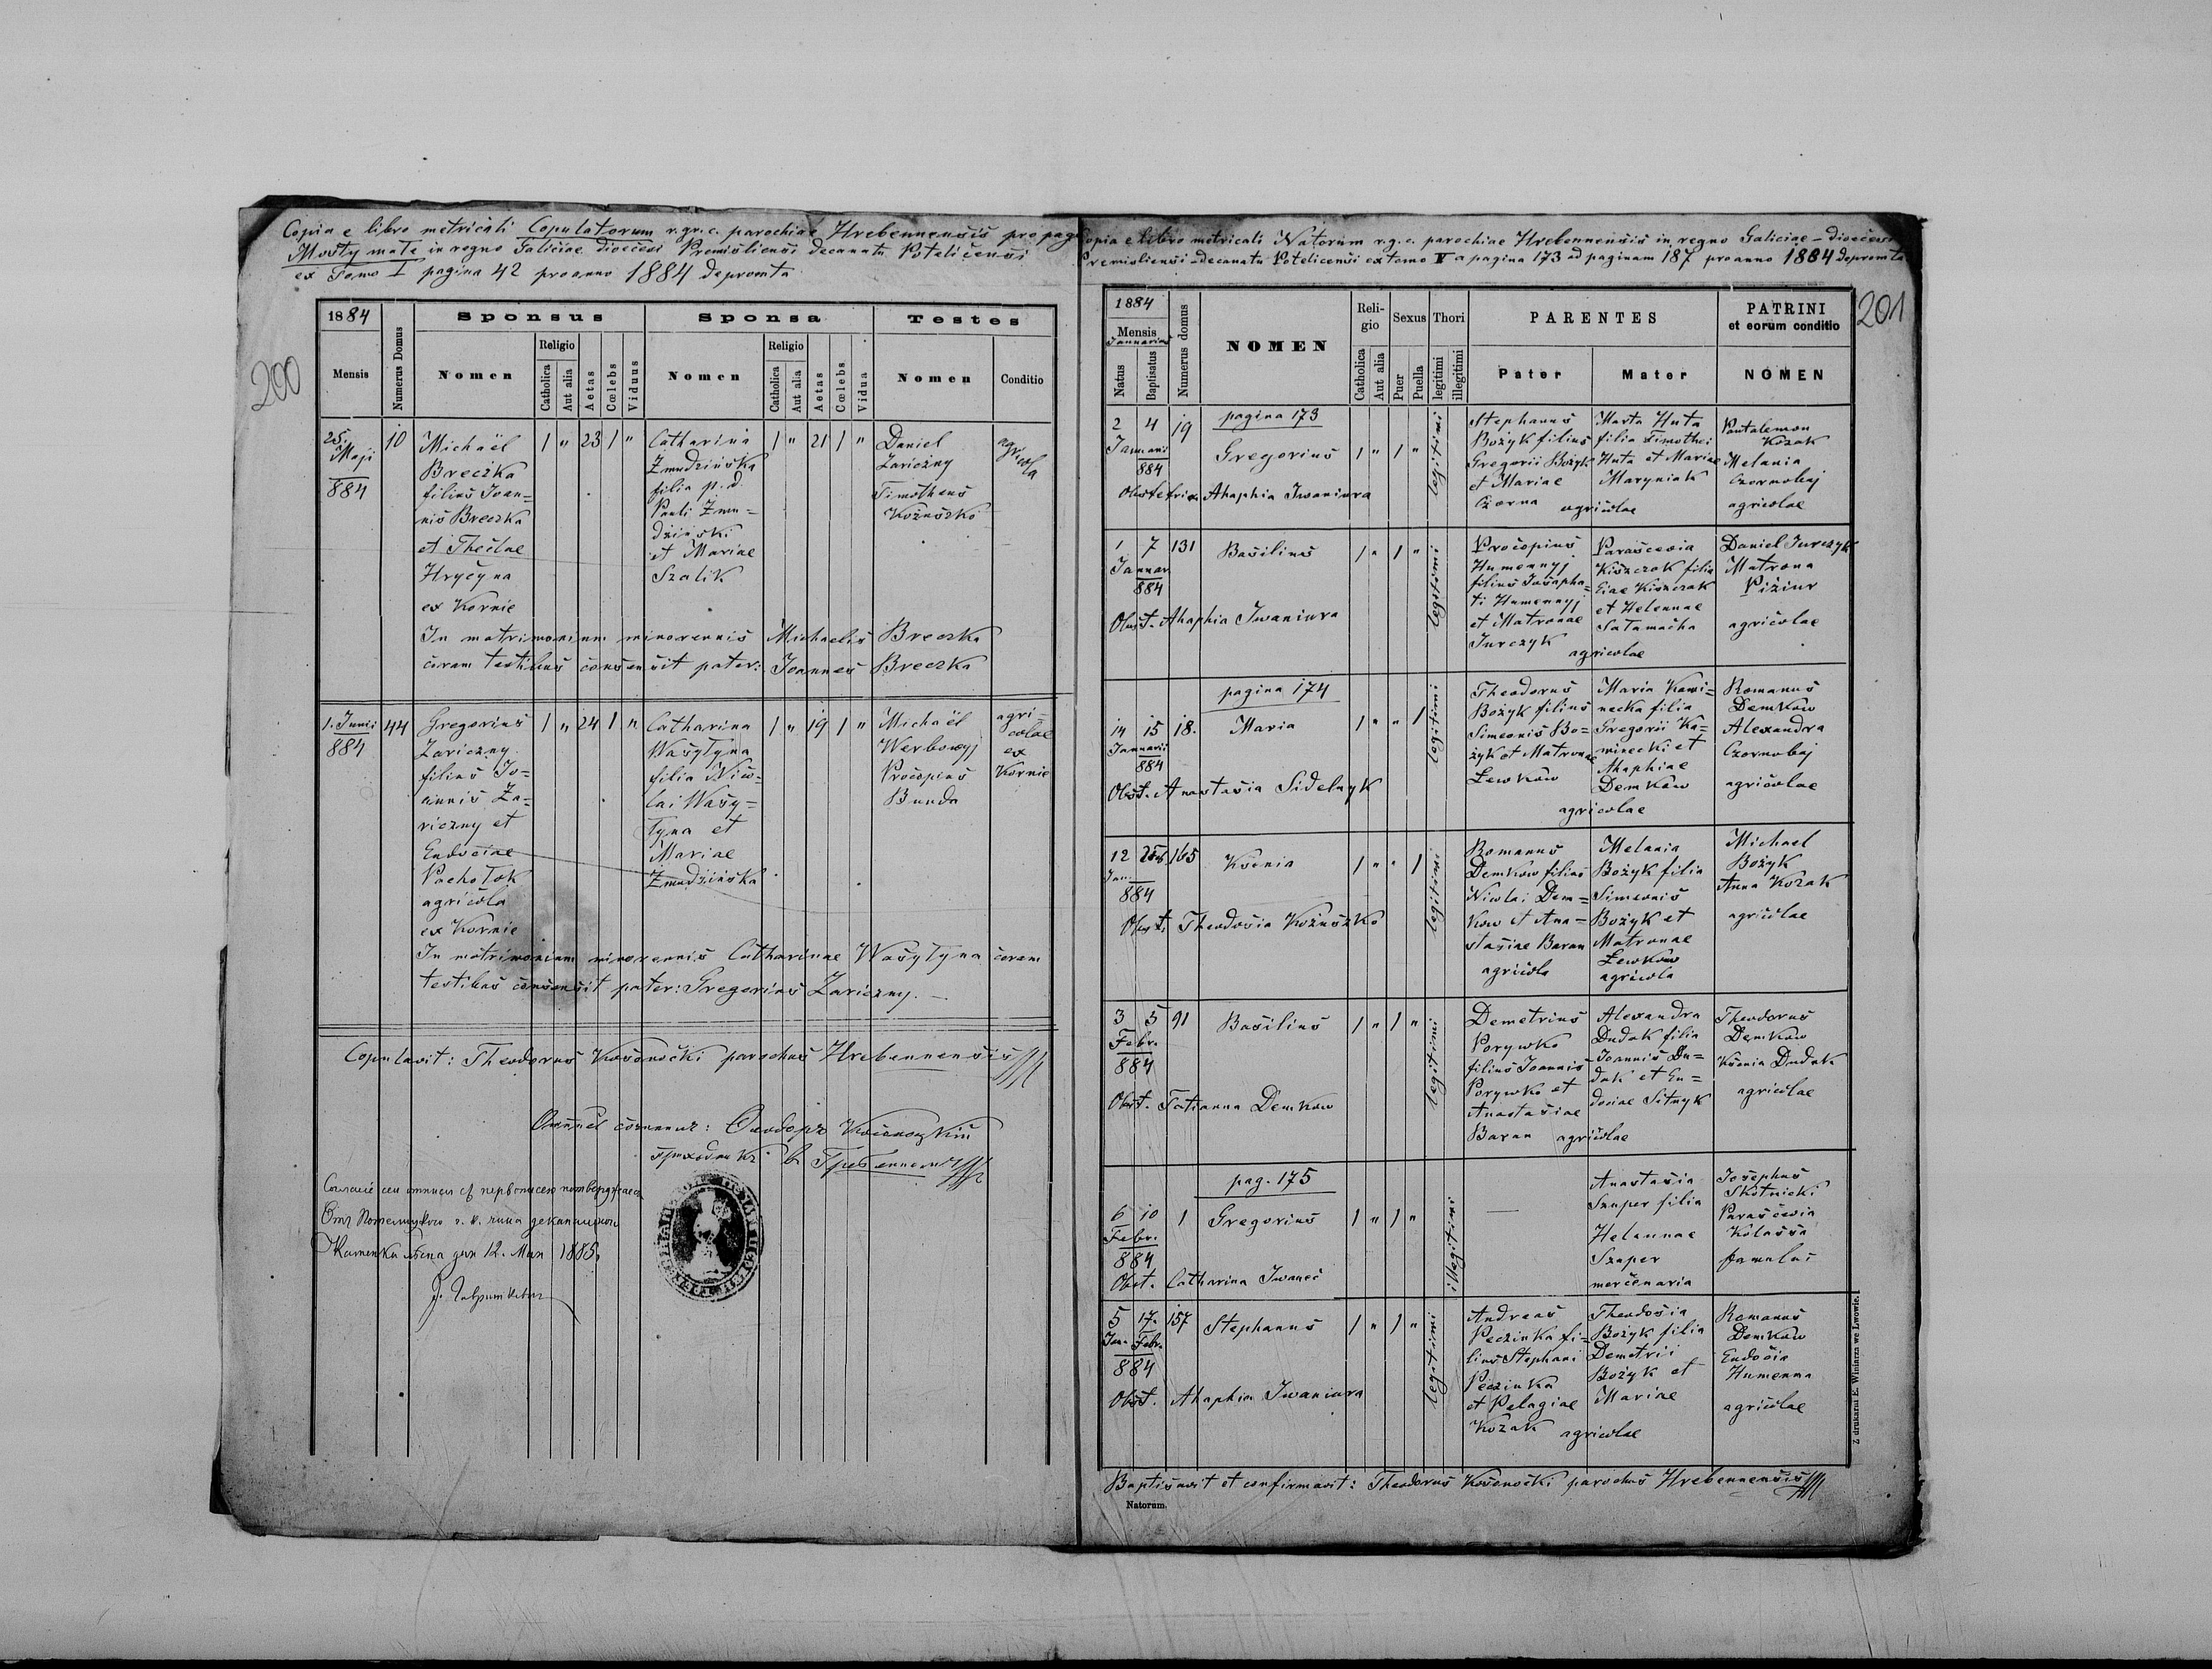 Copia e libro metricali Copulatorum r.gr.c. parochiae Hrebennensis pro pago
Mosty małe in regno Galiciae dioecesi Premisliensi decanatu Poteličensi
ex Tomo I pagina 42 pro anno 1884 depromta
200
1884
Mensis
Numerus Domus
Sponsus
Nomen
Religio
Catholica
Aut alia
Aetas
Cœlebs
Viduus
Sponsa
Nomen
Religio
Catholica
Aut alia
Aetas
Cœlebs
Vidua
Testes
Nomen
Conditio
25.
Maji
884
10
Michaël
Breczka
filius Joan=
nis Breczka
et Theclae
Hryčyna
ex Kornie
1 " 23 1 "
Catharina
Żmudzińska
filia p.d.
Pauli Żmu=
dziński
et Mariae
Szalik
1 " 21 1 "
Daniel
Zariczny
Timotheus
Kożuszko
agricola
In matrimonium minorennis Michaelis Breczka
coram testibus consensit pater: Joannes Breczka
1. Junii
884
44
Gregorius
Zariczny
filius Jo=
annis Za=
riczny et
Eudociae
Pachołok
agricola
ex Kornie
1 " 24 1 "
Catharina
Wasyłyna
filia Nico=
lai Wasy=
łyna et
Mariae
Żmudzińska
1 " 19 1 "
Michaël
Werbowyj
Procopius
Bunda
agri=
colae
ex
Kornie
In matrimonium minorennis Catharinae Wasyłyna coram
testibus consensit pater: Gregorius Zariczny.
Copulavit: Theodorus Kosonočki parochus Hrebennensis
12. 1885
Copia e libro metricali Natorum r.g.c. parochiae Hrebennensis in regno Galiciae - dioecesi
Premisliensi - decanatu Potelicensi ex tomo V a pagina 173 ad paginam 187 pro anno 1884 depromta
201
1884
Mensis
Januarius
Natus
Baptisatus
Numerus domus
NOMEN
Reli-
gio
Catholica
Aut alia
Sexus
Puer
Puella
Thori
legitimi
illegitimi
PARENTES
Pater
Mater
PATRINI
et eorum conditio
NOMEN
2 4 19
Januarii
884
pagina 173
Gregorius
1 " 1 "
legitimi
Stephanus
Bożyk filius
Gregorii Bożyk
et Mariae
Czorna
Marta Huta
filia Timothei
Huta et Mariae
Maryniak
agricolae
Pantalemon
Kozak
Melania
Czornobaj
agricolae
Obstetrix Ahaphia Iwaniura
1 7 131
Januar.
884
Basilius
1 " 1 "
legitimi
Procopius
Humennyj
filius Josapha=
ti Humennyj
et Matronae
Jurczyk
Parascevia
Kiszczak filia
Eliae Kiszczak
et Helennae
Sałamacha
agricolae
Daniel Jurczyk
Matrona
Piżiur
agricolae
Obst. Ahaphia Iwaniura
pagina 174
14 15 18.
Januarii
884
Maria
1 " " 1
legitimi
Theodorus
Bożyk filius
Simeonis Bo=
żyk et Matronae
Łewków
Maria Kami=
necka filia
Gregorii Ka=
minecki et
Ahaphiae
Demków
agricolae
Romanus
Demków
Alexandra
Czornobaj
agricolae
Obst. Anastasia Sidelnyk
12 165
Jan.
884
Ksenia
1 " " 1
legitimi
Romanus
Demkow filius
Nicolai Dem=
kow et Ana=
stasiae Baran
agricola
Melania
Bożyk filia
Simeonis
Bożyk et
Matronae
Łewków
agricola
Michael
Bożyk
Anna Kozak
agricolae
Obst. Theodosia Kożuszko
3 5 91
Febr.
884
Basilius
1 " 1 "
legitimi
Demetrius
Porywko
filius Joannis
Porywko et
Anastasiae
Baran
Alexandra
Dudak filia
Joannis Du=
dak et Eu=
dociae Sitnyk
agricolae
Theodorus
Demków
Ksenia Dudak
agricolae
Obst. Tatianna Demkow
pag. 175
6 10 1
Febr.
884
Gregorius
1 " 1 "
illegitimi
Anastasia
Szaper filia
Helennae
Szaper
mercenaria
Josephus
Skotnicki
Parascevia
Kolassa
famulus
Obst. Catharina Iwaneć
5 17. 157
Jan. Febr.
884
Stephanus
1 " 1 "
legitimi
Andreas
Peczinka fi=
lius Stephani
Peczinka
et Pelagiae
Kozak
Theodosia
Bożyk filia
Demetrii
Bożyk et
Mariae
agricolae
Romanus
Demków
Eudocia
Humenna
agricolae
Obst. Ahaphia Iwaniura
Baptisavit et confirmavit: Theodorus Kosonočki parochus Hrebennensis
Natorum.
Z drukarni E. Winiarza we Lwowie.